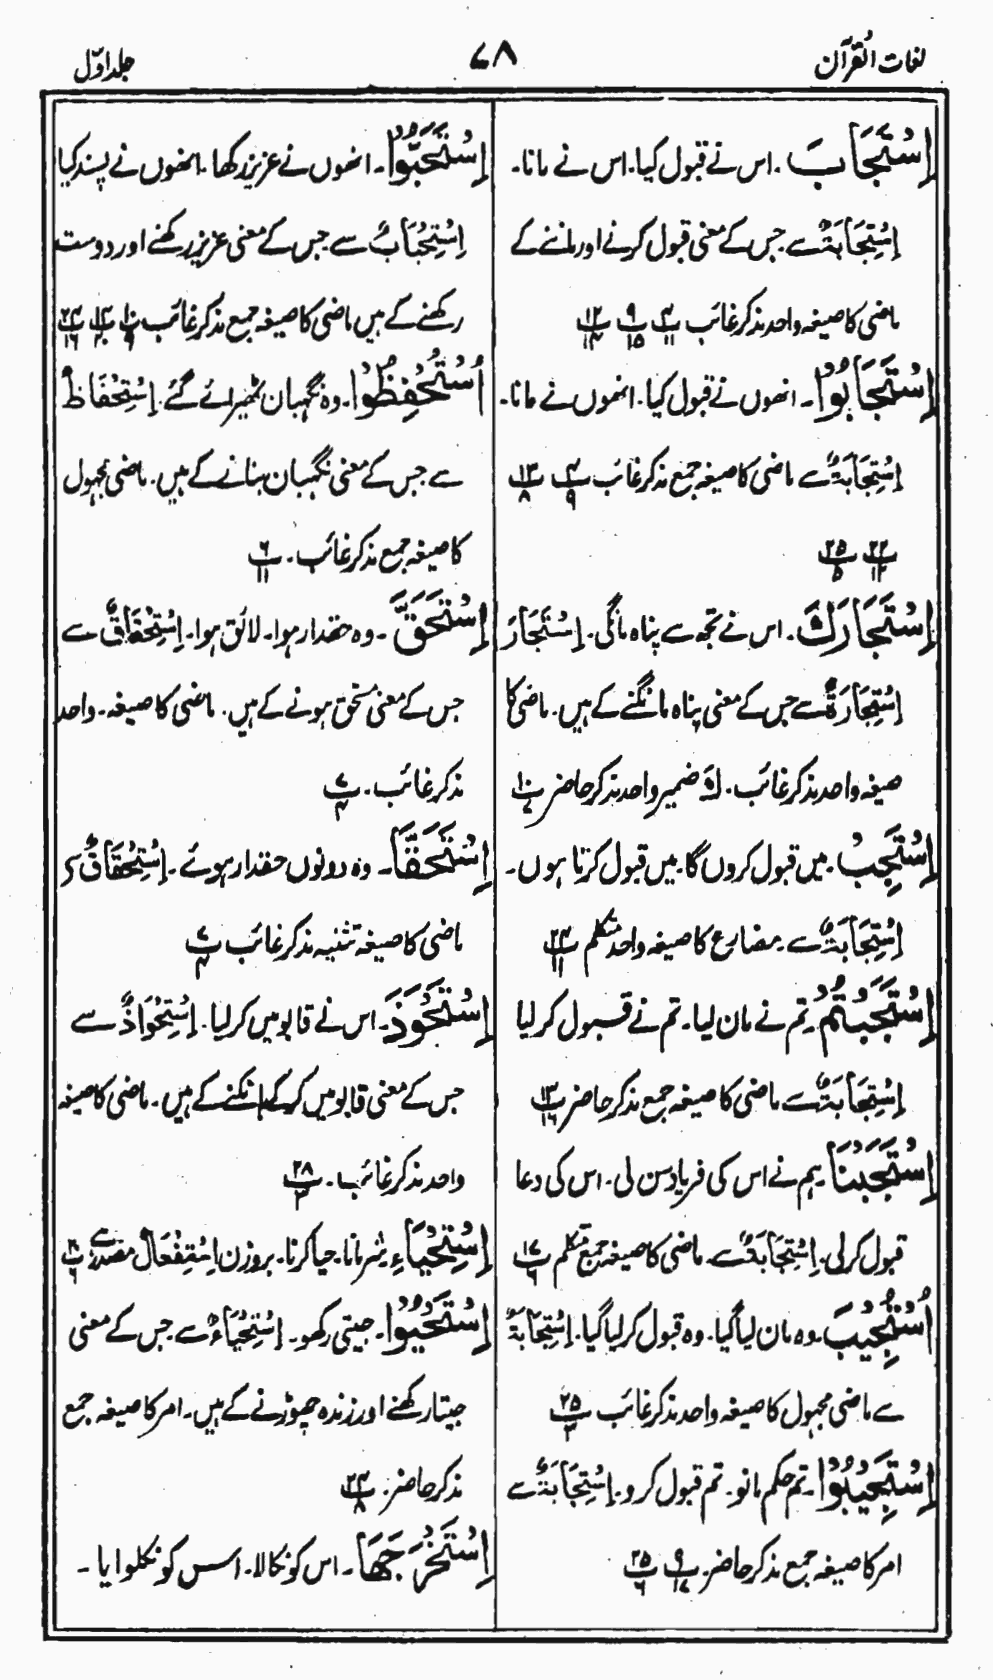 لغات القرآن
۷۸
جلد اوّل
اِسْتَجَابَ ۔ اس نے قبول کیا۔ اس نے مانا۔
اِسْتِجَابَۃٌ سے جس کے معنی قبول کرنے اور ماننے کے
ماضی کا صیغہ واحد مذکر غائب
اِسْتَجَابُوْا ۔ انھوں نے قبول کیا۔ انھوں نے مانا۔
اِسْتِجَابَۃٌ سے ماضی کا صیغہ جمع مذکر غائب پ۴/۹ پ۱۳/۸
پ۲۲/۱۴ پ۲۵/۵
اِسْتَجَارَكَ ۔ اس نے تجھ سے پناہ مانگی۔ اِسْتَجَارَ
اِسْتِجَارَۃٌ سے جس کے معنی پناہ مانگنے کے ہیں۔ ماضی کا
صیغہ واحد مذکر غائب۔ كَ ضمیر واحد مذکر حاضر پ۱۰/۷
اِسْتَجِبْ ۔ میں قبول کروں گا۔ میں قبول کرتا ہوں۔
اِسْتِجَابَۃٌ سے۔ مضارع کا صیغہ واحد متکلم پ۲۴/۱۱
اِسْتَجَبْتُمْ ۔ تم نے مان لیا۔ تم نے قبول کر لیا
اِسْتِجَابَۃٌ سے ماضی کا صیغہ جمع مذکر حاضر پ۱۳/۱۶
اِسْتَجَبْنَا ۔ ہم نے اس کی فریاد سن لی۔ اس کی دعا
قبول کر لی۔ اِسْتِجَابَۃٌ سے۔ ماضی کا صیغہ جمع متکلم پ۱۷/۶
اُسْتُجِيْبَ ۔ وہ مان لیا گیا۔ وہ قبول کر لیا گیا۔ اِسْتِجَابَۃٌ
سے ماضی مجہول کا صیغہ واحد مذکر غائب پ۲۵/۳
اِسْتَجِيْبُوْا ۔ تم حکم مانو۔ تم قبول کرو۔ اِسْتِجَابَۃٌ سے
امر کا صیغہ جمع مذکر حاضر۔ پ۹/۱۷ پ۲۵/۶
اِسْتَحَبُّوْا ۔ انھوں نے عزیز رکھا۔ انھوں نے پسند کیا
اِسْتِحْبَابٌ سے جس کے معنی عزیز رکھنے اور دوست
رکھنے کے ہیں ماضی کا صیغہ جمع مذکر غائب
اُسْتُحْفِظُوْا ۔ وہ نگہبان ٹھیرائے گئے۔ اِسْتِحْفَاظٌ
سے جس کے معنی نگہبان بنانے کے ہیں۔ ماضی مجہول
کا صیغہ جمع مذکر غائب۔ پ۶/۱۱
اِسْتَحَقَّ ۔ وہ حقدار ہوا۔ لائق ہوا۔ اِسْتِحْقَاقٌ سے
جس کے معنی مستحق ہونے کے ہیں۔ ماضی کا صیغہ۔ واحد
مذکر غائب۔ پ۷/۴
اِسْتَحَقَّا ۔ وہ دونوں حقدار ہوئے۔ اِسْتِحْقَاقٌ
ماضی کا صیغہ تثنیہ مذکر غائب پ۷/۴
اِسْتَحْوَذَ ۔ اس نے قابو میں کر لیا۔ اِسْتِحْوَاذٌ سے
جس کے معنی قابو میں کر کے ہانکنے کے ہیں۔ ماضی کا صیغہ
واحد مذکر غائب۔ پ۲۸/۳
اِسْتِحْيَاءٍ شرمانا۔ حیا کرنا۔ بروزن اِسْتِفْعَالٌ مصدر ہے پ۲۰/۶
اِسْتَحْيُوْا ۔ جیتی رکھو۔ اِسْتِحْيَاءٌ سے جس کے معنی
جیتا رکھنے اور زندہ چھوڑنے کے ہیں۔ امر کا صیغہ جمع
مذکر حاضر۔ پ۲۴/۸
اِسْتَخْرَجَهَا ۔ اس کو نکالا۔ اس کو نکلوایا۔